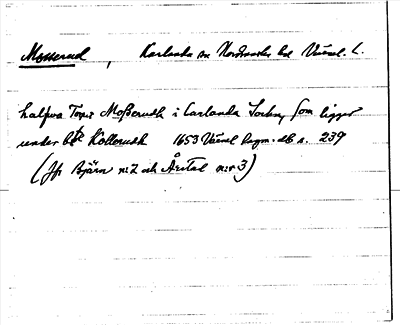 Mosserud, Karlanda sn Nordmarks hd Värml. L.
halfwa Torp Moßerudh i Carlanda Sochn, som ligger
under Kollerudh 1653 Värml Dagm. db s. 239
(Jfr Bjärn n:2 och Årtal n:r 3)